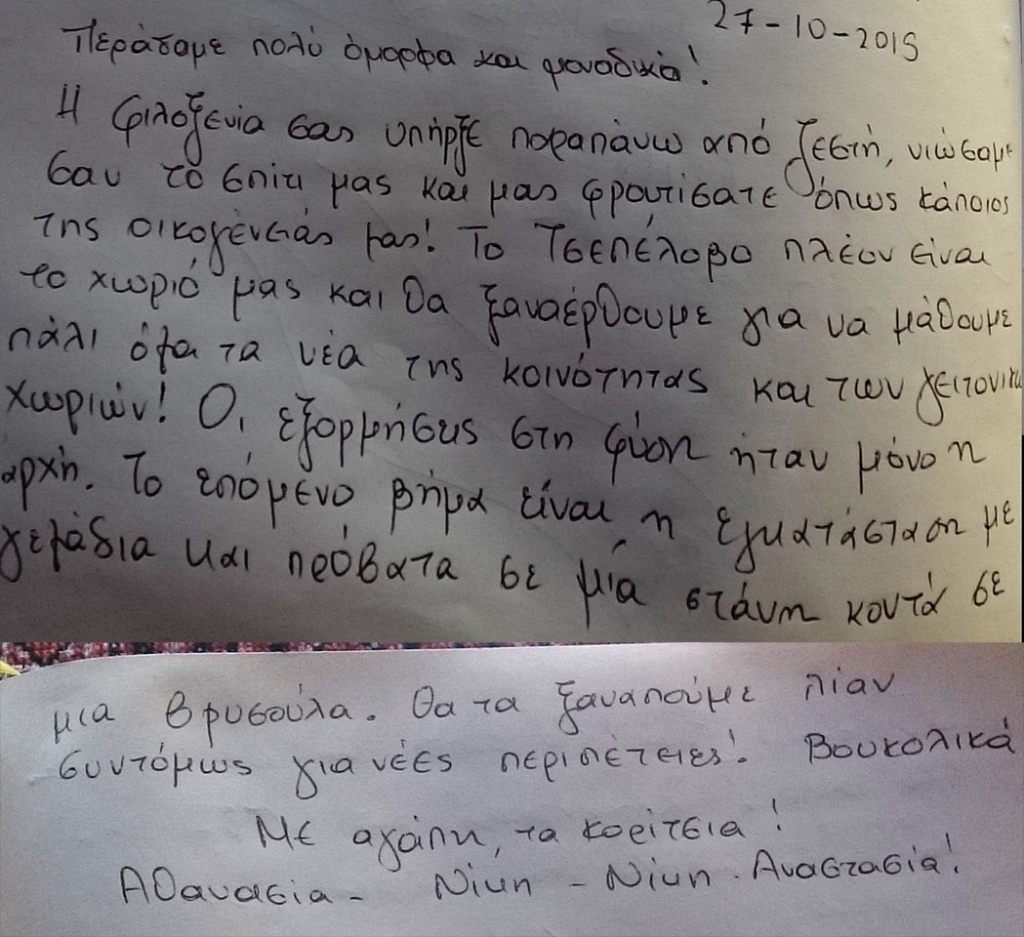 27-10-2015
Περάσαμε πολύ όμορφα και μοναδικά!
Η φιλοξενία σας υπήρξε παραπάνω από ζεστή, νιώσαμε
σαν το σπίτι μας και μας φροντίσατε όπως κάποιος
της οικογένειάς μας! Το Τσεπέλοβο πλέον είναι
το χωριό μας και θα ξαναέρθουμε για να μάθουμε
πάλι όλα τα νέα της κοινότητας και των γειτονικών
χωριών! Οι εξορμήσεις στη φύση ήταν μόνο η
αρχή. Το επόμενο βήμα είναι η εγκατάσταση με
γελάδια και πρόβατα σε μία στάνη κοντά σε
μια βρυσούλα. Θα τα ξαναπούμε λίαν
συντόμως για νέες περιπέτειες! Βουκολικά
Με αγάπη, τα κορίτσια!
Αθανασία - Νίκη - Νίκη - Αναστασία!